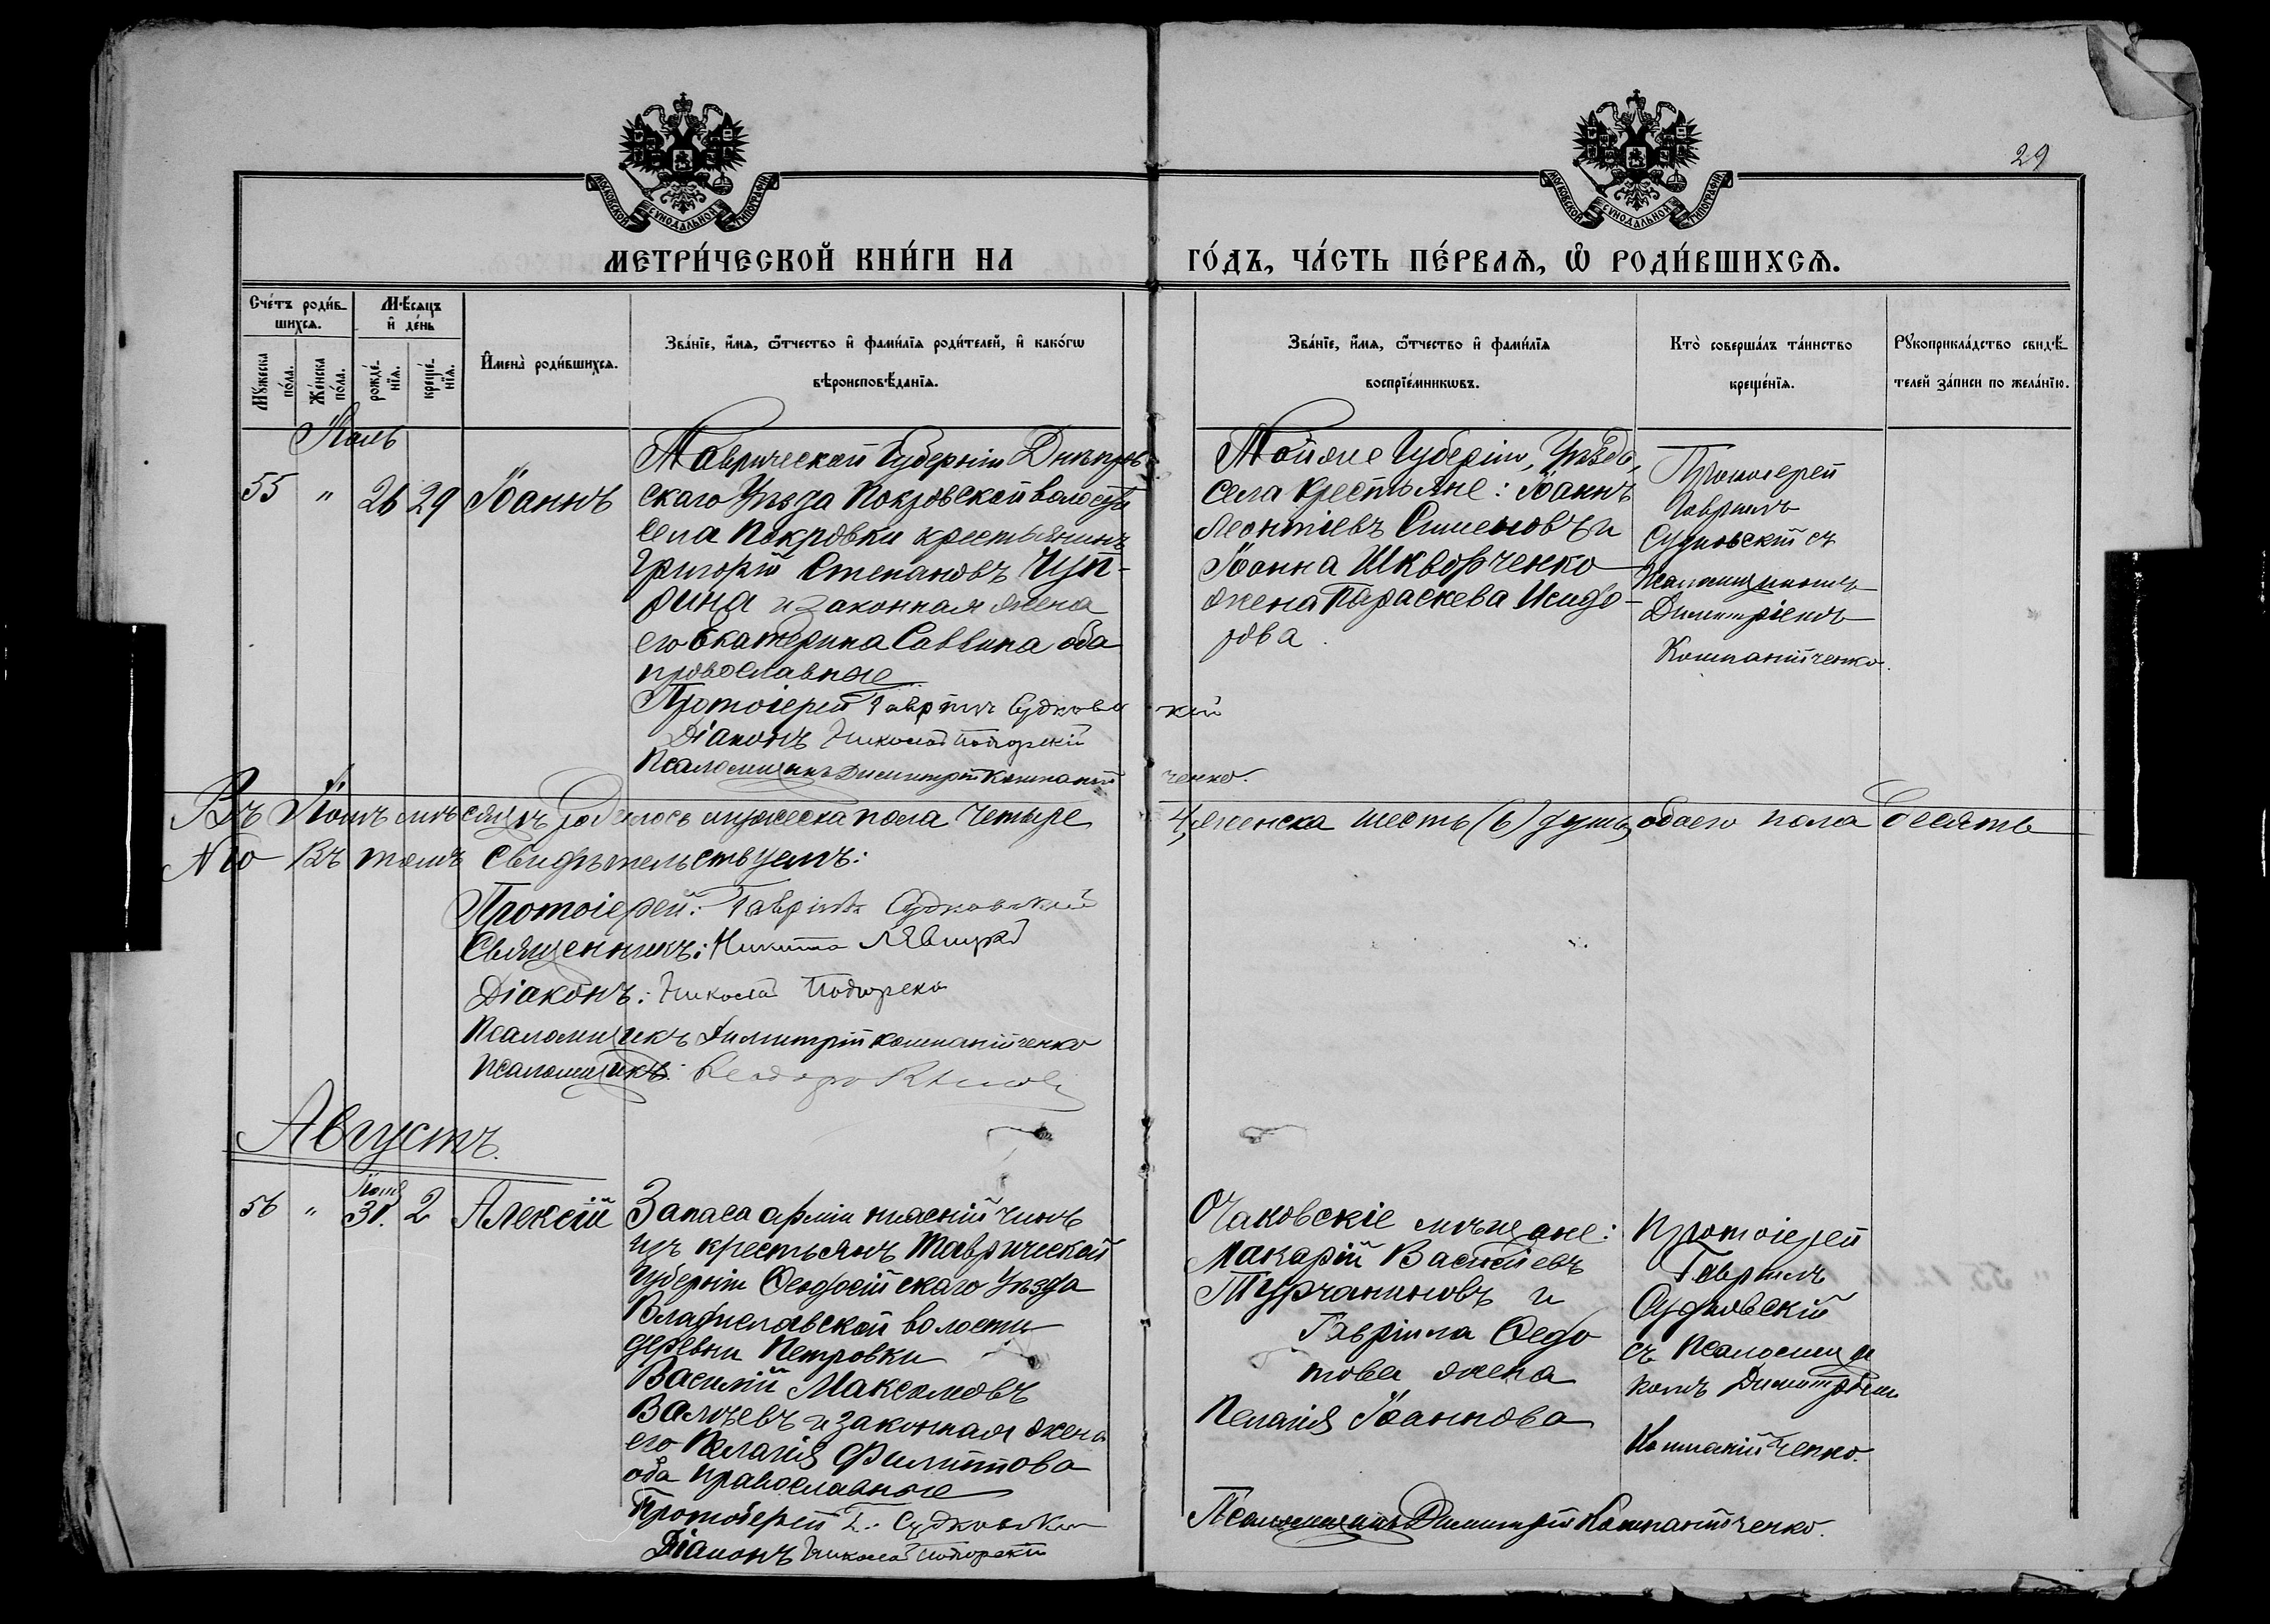 29
МОСКОВСКОЙ СУНОДАЛЬНОЙ ТИПОГРАФІИ
МОСКОВСКОЙ СУНОДАЛЬНОЙ ТИПОГРАФІИ
МЕТРИ́ЧЕСКОЙ КНИ́ГИ НА
ГО́ДЪ, ЧА́СТЬ ПЕ́РВАѦ, Ѡ҆ РОДИ́ВШИХСѦ.
Сче́тъ роди́в-
шихсѧ.
Мꙋ́жеска по́ла.
Же́нска по́ла.
Мѣ́сѧцъ
и҆ де́нь
рожде́-нїѧ.
креще́-нїѧ.
И҆мена̀ роди́вшихсѧ.
Зва́нїе, и҆́мѧ, ѻ҆́тчество и҆ фами́лїѧ роди́телей, и҆ како́гѡ
вѣроисповѣ́данїѧ.
Зва́нїе, и҆́мѧ, ѻ҆́тчество и҆ фами́лїѧ
воспрїе́мникѡвъ.
Кто̀ соверша́лъ та́инство
креще́нїѧ.
Рꙋкоприкла́дство свидѣ́-
телей за́писи по жела́нїю.
Іюль
55 " 26 29 Іоаннъ
Таврической Губерніи Днѣпров
скаго Уѣзда Покровской волости
села Покровки крестьянинъ
Григорій Степановъ Чуп-
рина и законная жена
его Екатерина Саввина оба
православные
Протоіерей Гавріилъ Судковскій
Діаконъ Николай Подгорскій
Псаломщикъ Димитрій Компанійченко.
Той же Губерніи, Уѣзда,
села крестьяне: Іоаннъ
Леонтіевъ Симоновъ и
Іоанна Шкворченко
жена Параскева Исидо-
рова.
Протоіерей
Гавріилъ
Судковскій съ
Псаломщикомъ
Димитріемъ
Компанійченко.
Въ Іюлѣ мѣсяцѣ родилось мужеска пола четыре 4, женска шесть (6) душъ, обоего пола десять
№ 10 Въ томъ свидѣтельствуемъ:
Протоіерей: Гавріилъ Судковскій
Священникъ: Никита
Діаконъ: Николай Подгорскій
Псаломщикъ Димитрій Компанійченко
Псаломщикъ:
Августъ.
56 " Іюля 31. 2 Алексій
Запаса арміи нижній чинъ
изъ крестьянъ Таврической
Губерніи Ѳеодосійскаго Уѣзда
Владиславской волости
деревни Петровки
Василій Максимовъ
Валѣевъ и законная жена
его Пелагія Филиппова
оба православные
Протоіерей Г. Судковскій
Діаконъ Николай Подгорскій
Очаковскіе мѣщане:
Макарій Васильевъ
Турчаниновъ и
Гавріила Ѳедо
това жена
Пелагія Іоаннова
Протоіерей
Гавріилъ
Судковскій
съ Псаломщи
комъ Димитріемъ
Компанійченко.
Псаломщикъ Димитрій Компанійченко.